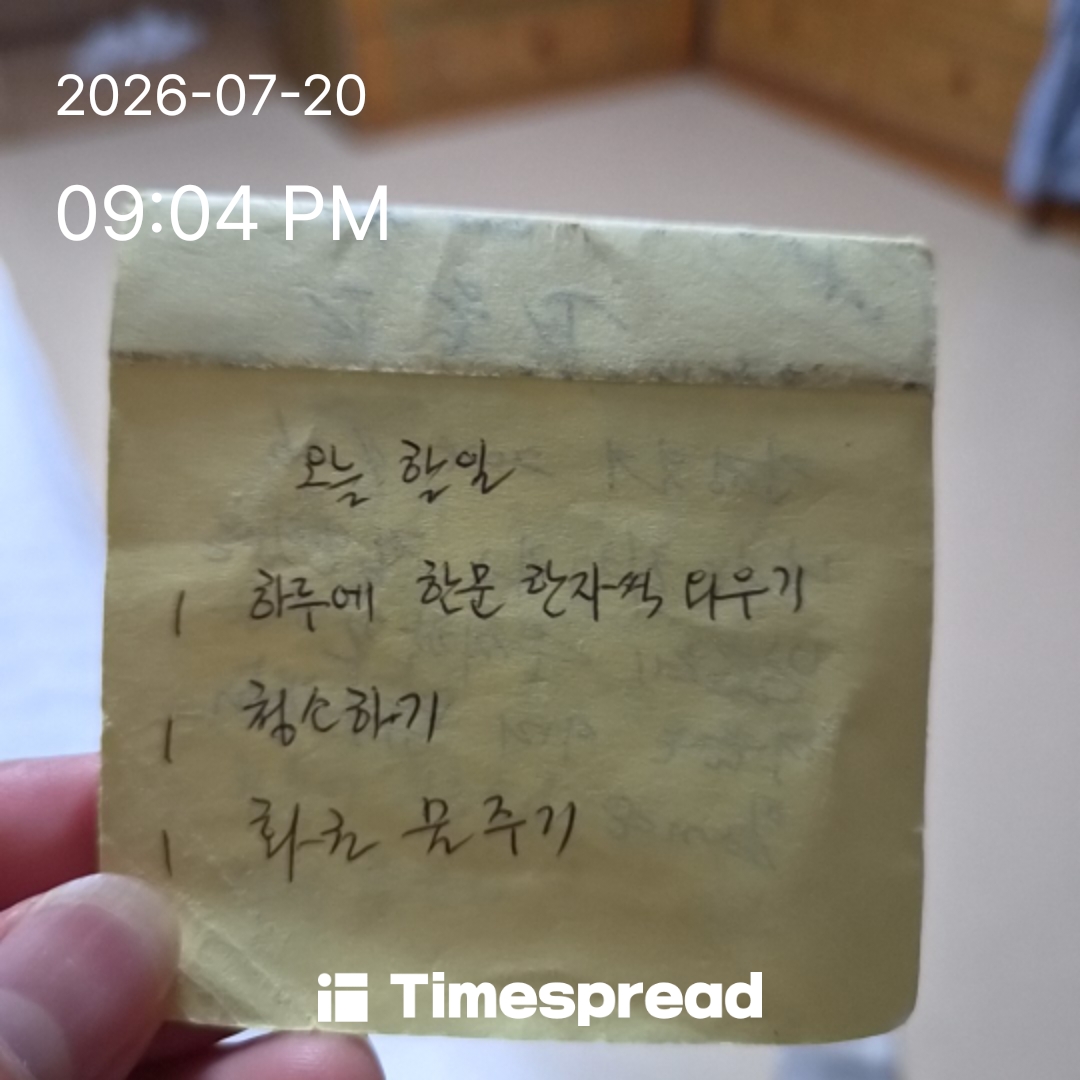 2026-07-20
09:04 PM
오늘 할일
1 하루에 한문 한자씩 외우기
1 청소하기
1 화초 물주기
Timespread